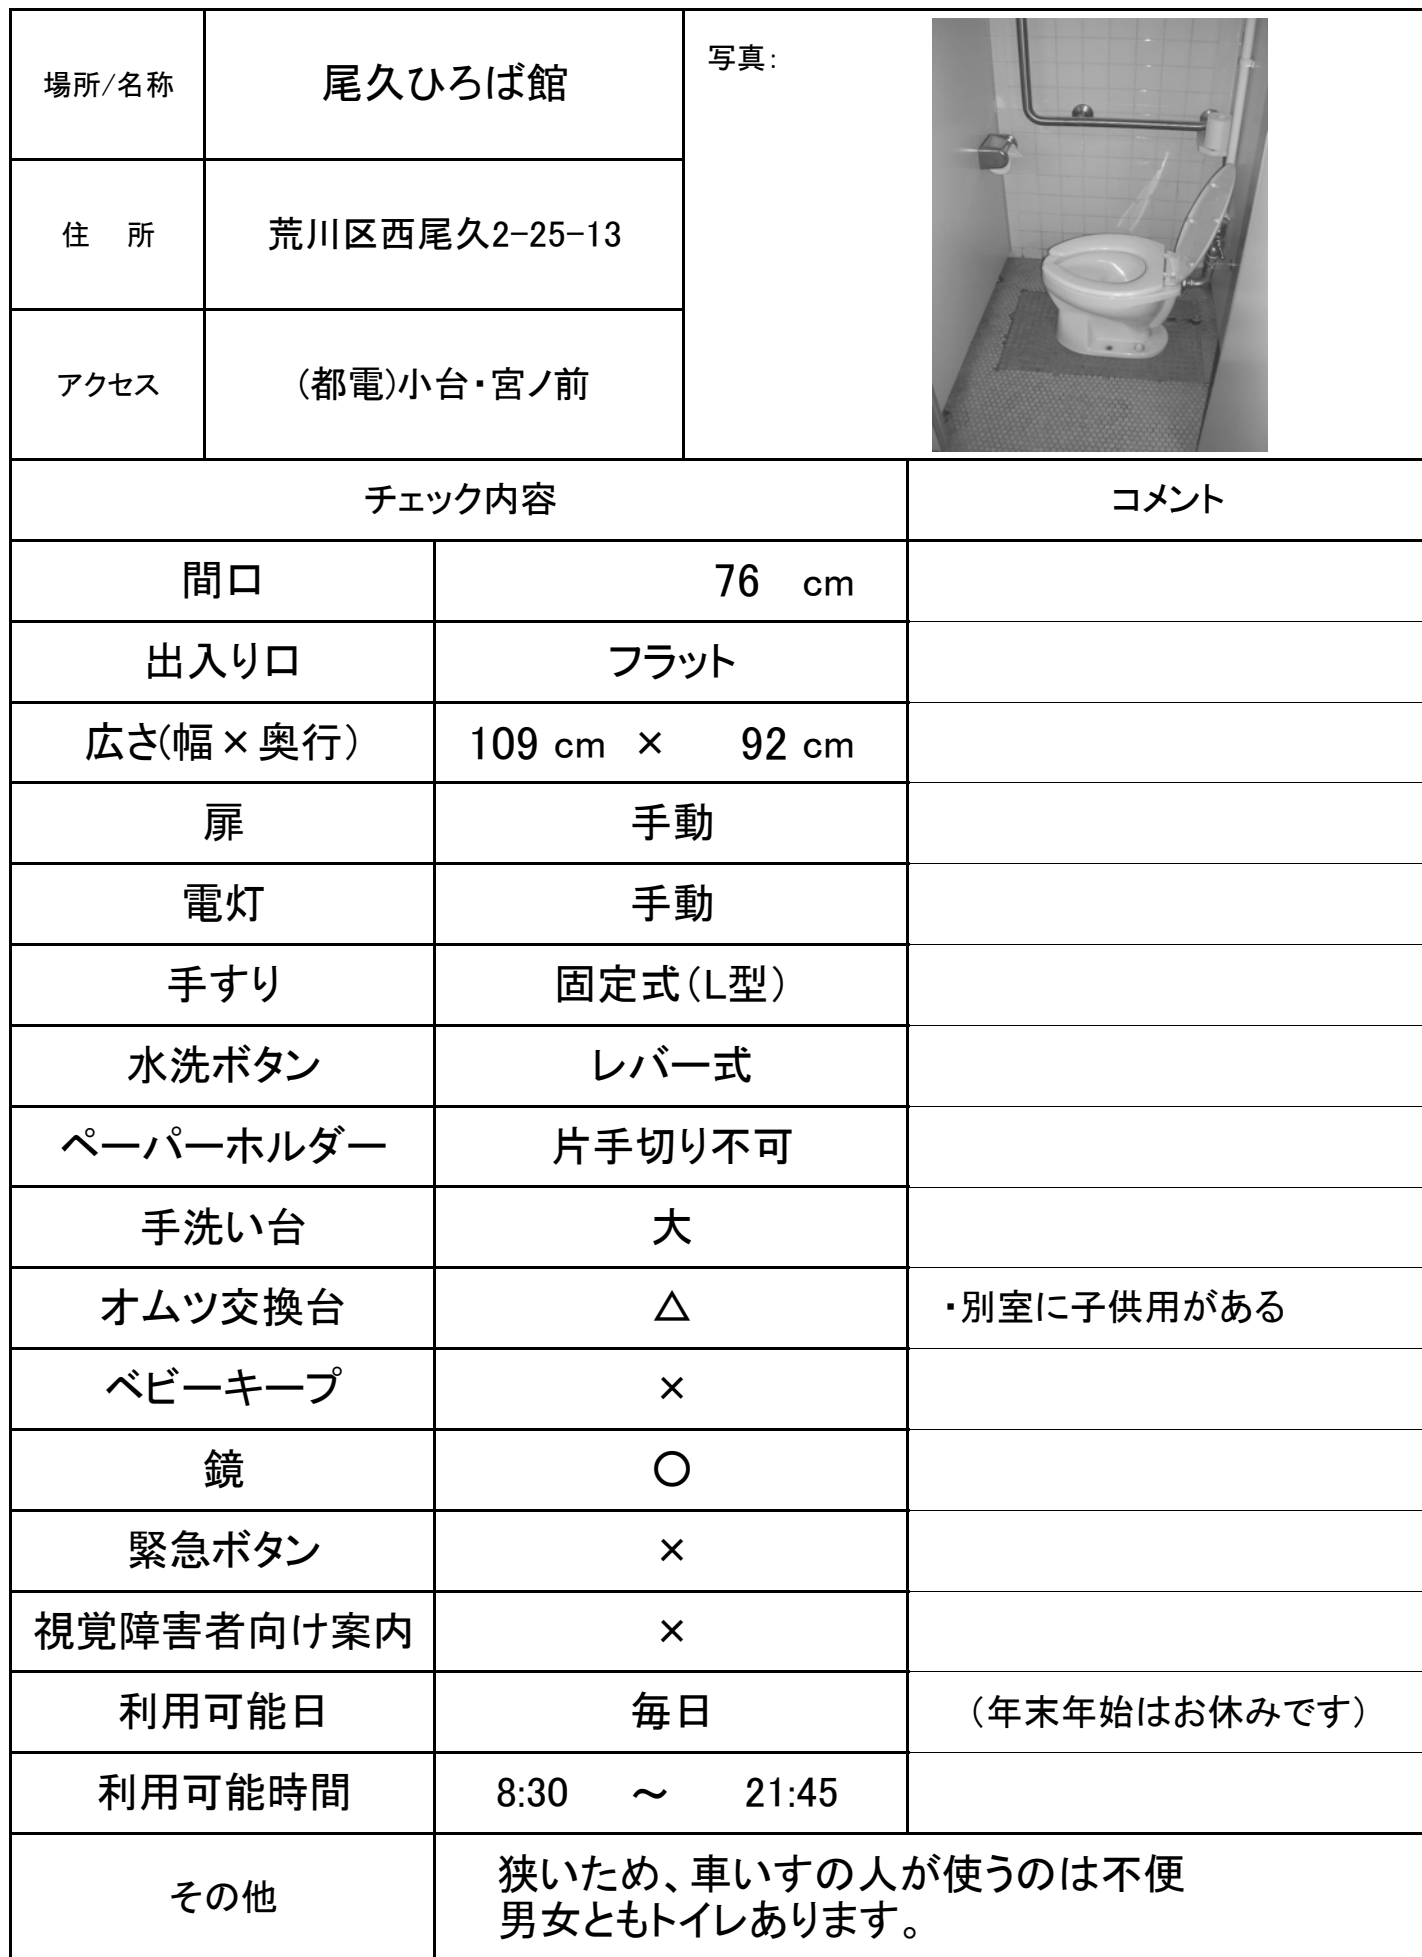 場所/名称 尾久ひろば館 写真:
住　所 荒川区西尾久2-25-13
アクセス (都電)小台・宮ノ前
チェック内容 コメント
間口 76 cm
出入り口 フラット
広さ(幅×奥行) 109 cm × 92 cm
扉 手動
電灯 手動
手すり 固定式(L型)
水洗ボタン レバー式
ペーパーホルダー 片手切り不可
手洗い台 大
オムツ交換台 △ ・別室に子供用がある
ベビーキープ ×
鏡 ○
緊急ボタン ×
視覚障害者向け案内 ×
利用可能日 毎日 (年末年始はお休みです)
利用可能時間 8:30 ～ 21:45
その他 狭いため、車いすの人が使うのは不便
男女ともトイレあります。